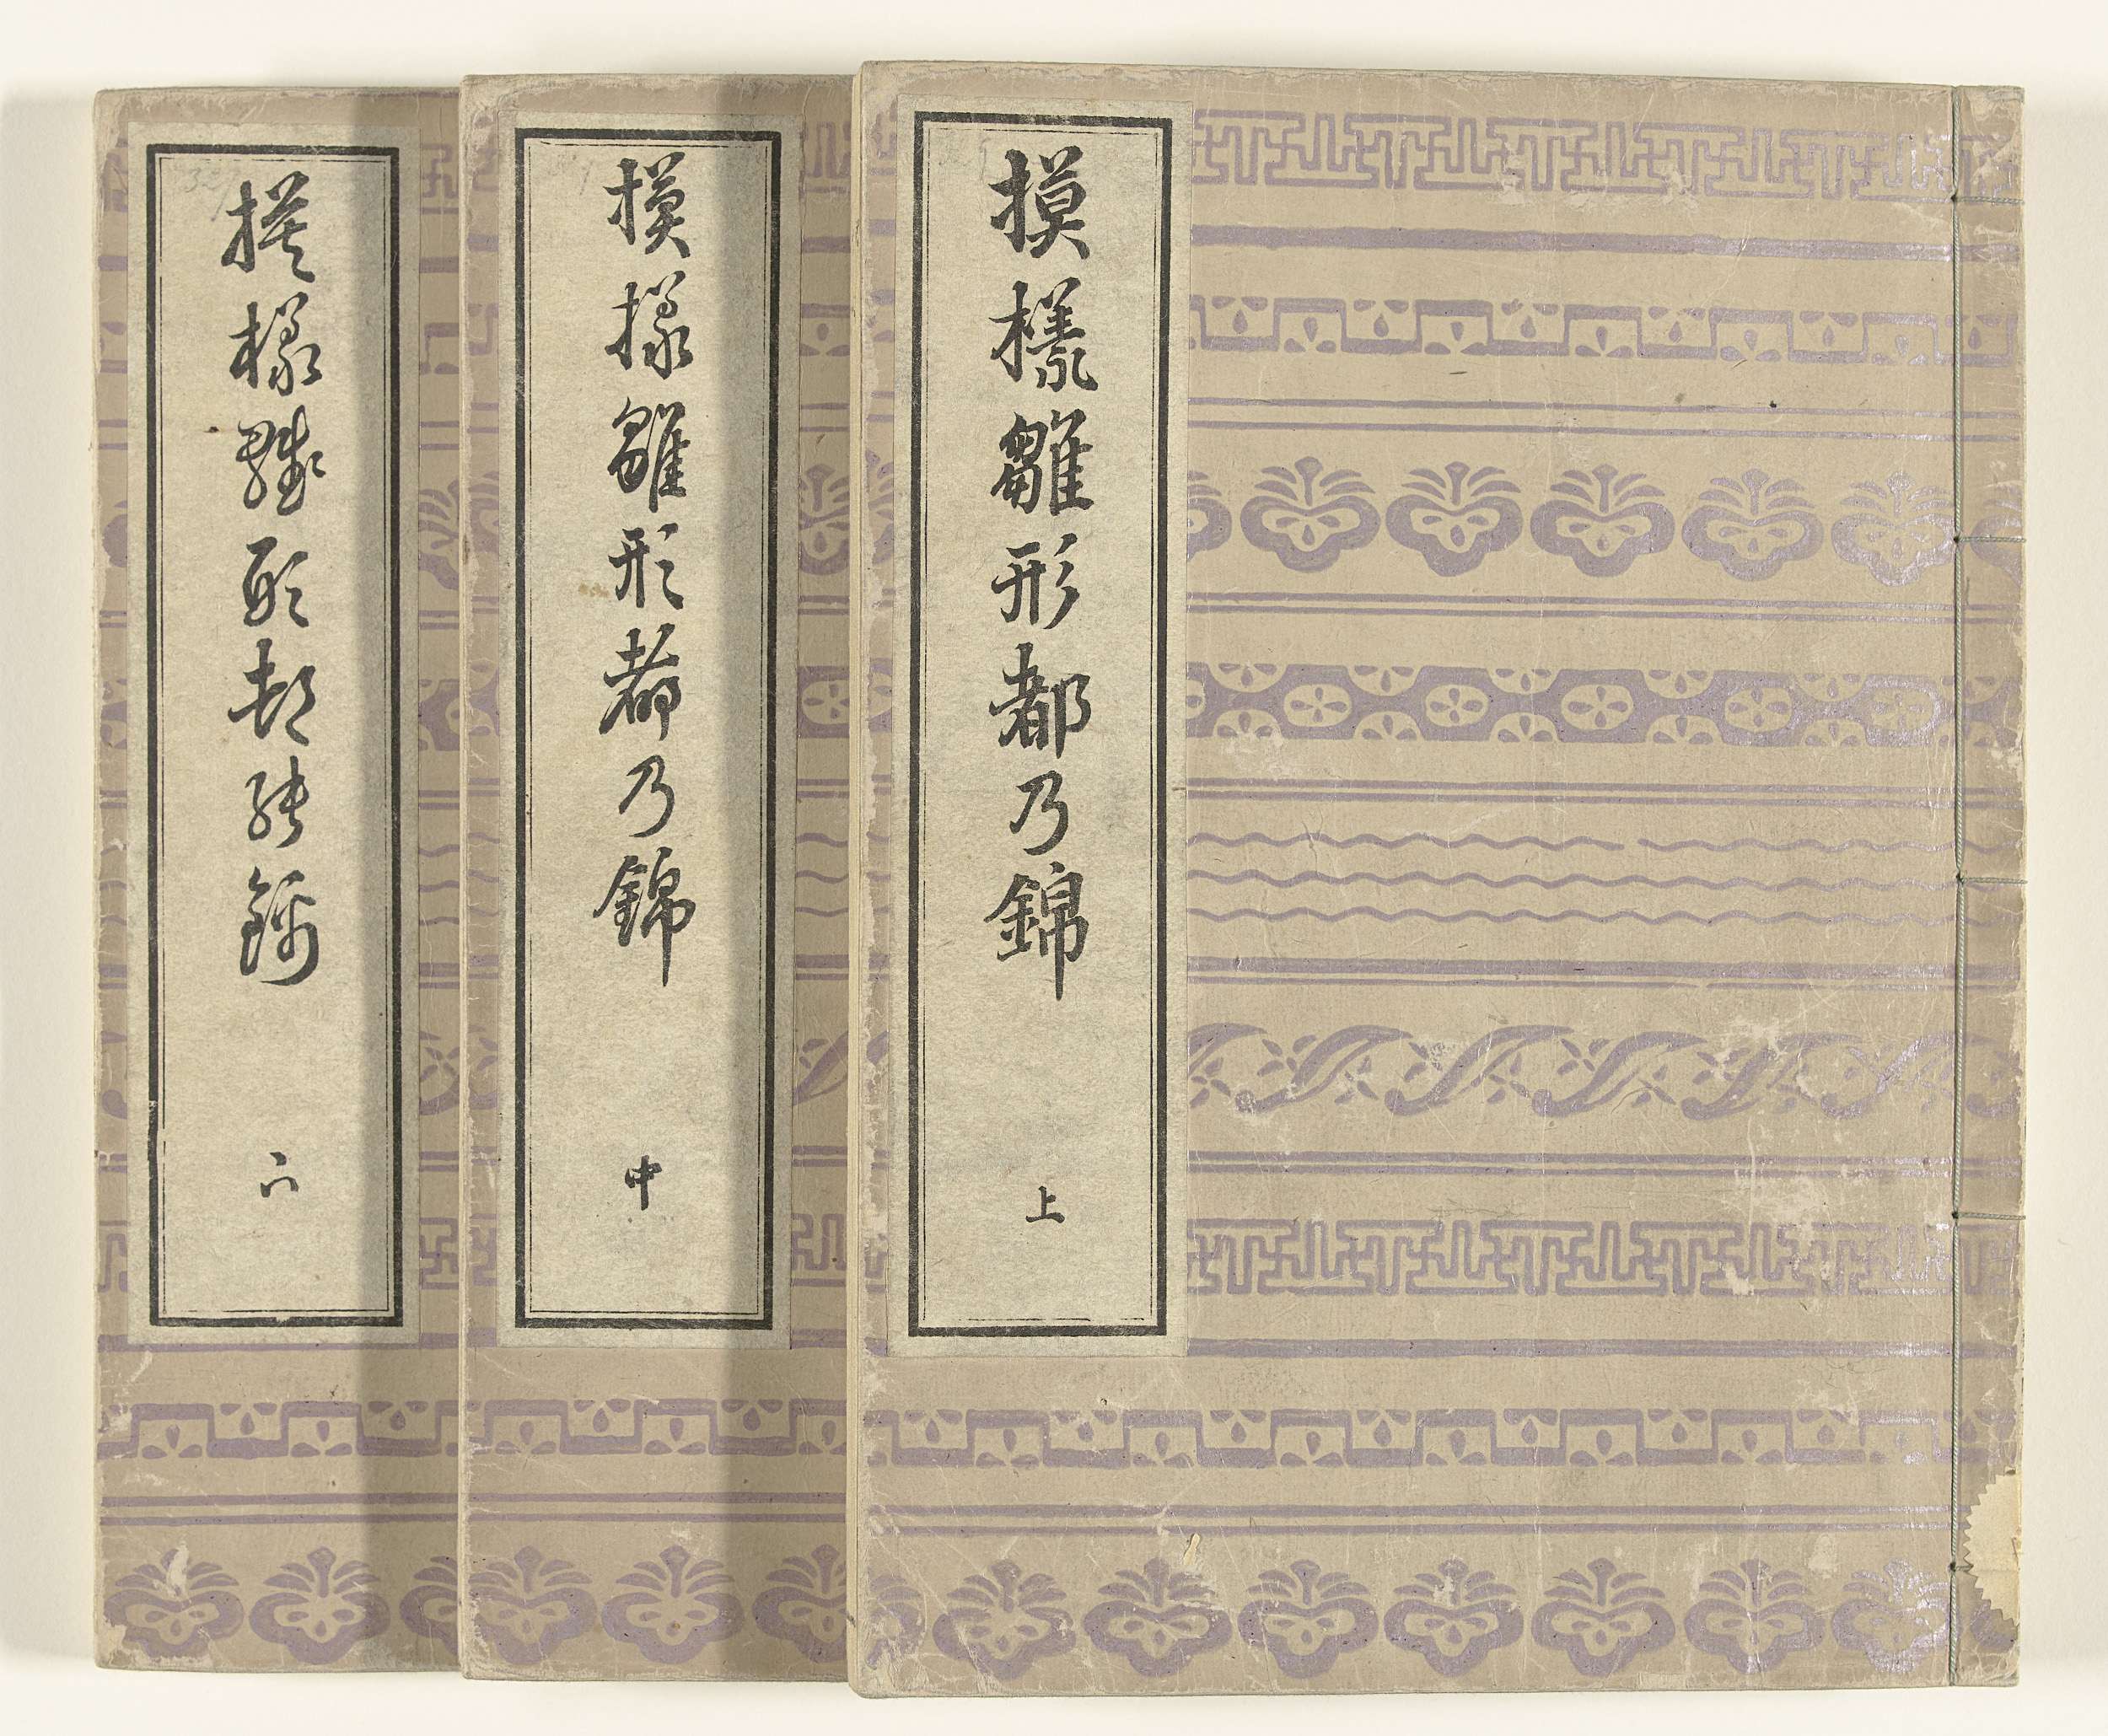 摸様雛形都乃錦
上
摸様雛形都乃錦
中
摸様雛形都能錦
下